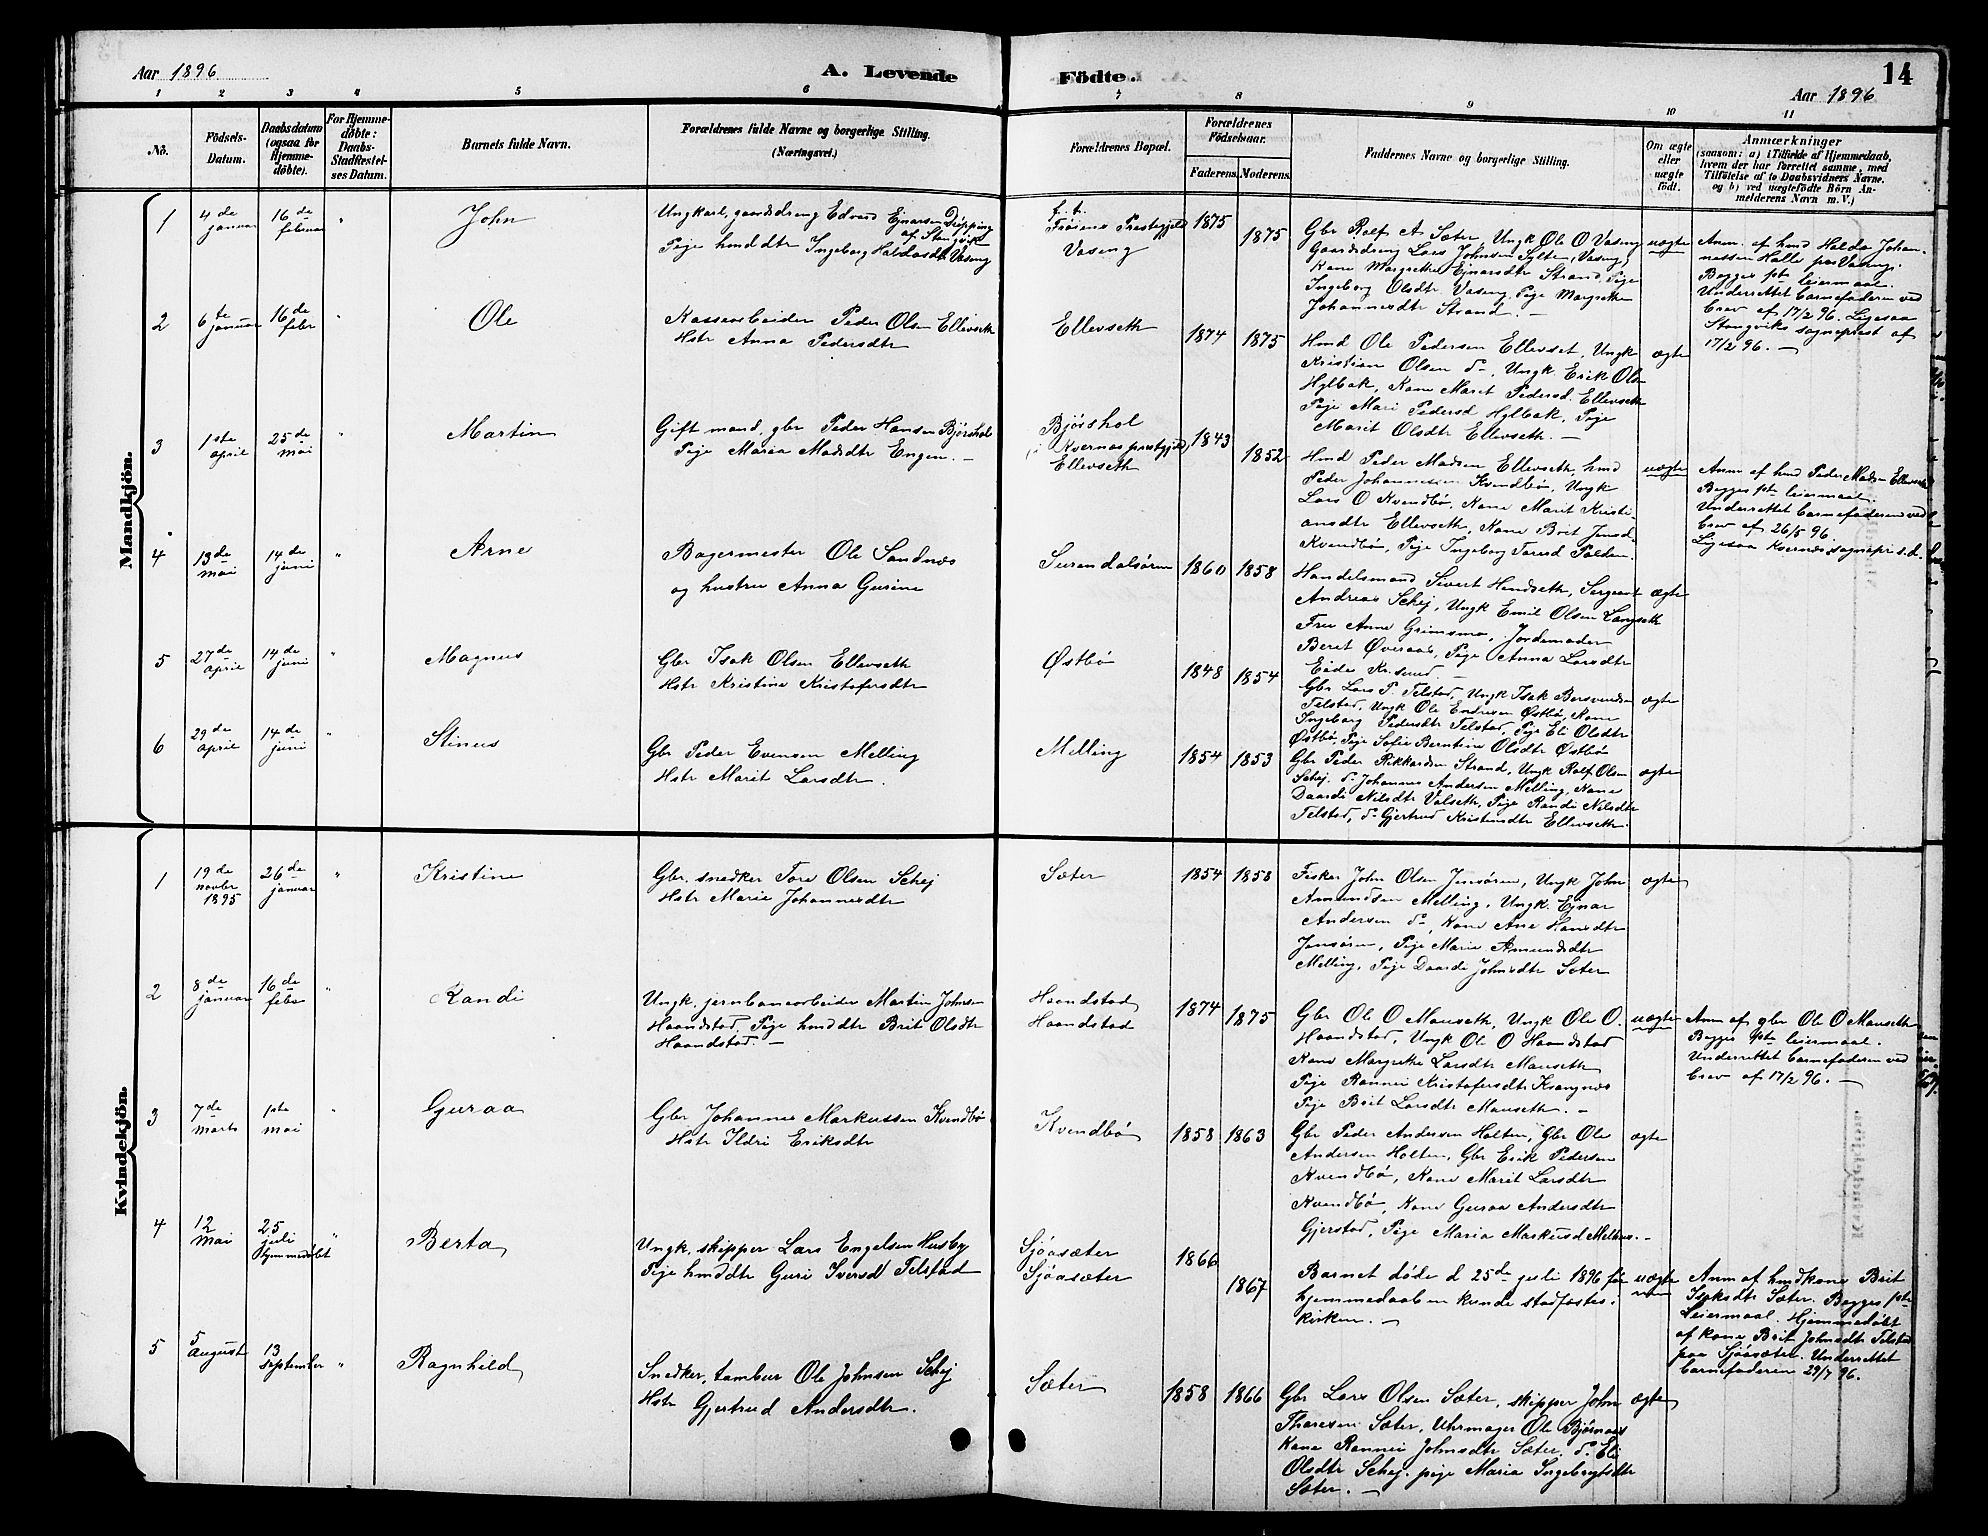 Aar 1896
A. Levende
Födte.
14
Aar 1896
1 2 3 4 5 6 7 8 9 10 11
No.
Födsels-
Datum.
Daabsdatum
(ogsaa for
Hjemme-
döbte).
For Hjemme-
döbte:
Daabs-
Stadfæstel-
ses Datum.
Barnets fulde Navn.
Forældrenes fulde Navne og borgerlige Stilling.
(Næringsvei.)
Forældrenes Bopæl.
Forældrenes
Födselsaar.
Faderens. Moderens.
Faddernes Navne og borgerlige Stilling.
Om ægte
eller
uægte
födt.
Anmærkninger
(saasom: a) i Tilfælde af Hjemmedaab,
hvem der har forrettet samme, med
Tilföielse af to Daabsvidners Navne.
og b) ved uægtefödte Börn An-
melderens Navn m. V.)
Mandkjön.
1
4de
januar
16de
februar
"
John
Ungkarl, gaardsdreng Edvard Ejnarsen Dröpping
af Stangvik
Pige hmddtr Ingeborg Haldosdtr Vaseng
Fröiens Prestegjeld
Vaseng
1875
1875
Gbr Rolf A Sæter, Ungk Ole O Vaseng
Gaardsdreng Lars Johnsen Sylte, Vaseng,
Kone Margrethe Ejnarsdtr Strand, Pige
Ingeborg Olsdtr Vaseng, Pige Margrethe
Johannesdtr Strand. —
uægte
Anm. af hmd Haldo Johan-
nessen Halle paa Vaseng.
Begges 1ste leiermaal.
Underrettet barnefaderen ved
brev af 17/2 96. Ligesaa
Stangviks sogneprest af
17/2 96. —
2
6te
januar
16de
febr
"
Ole
Kassearbeider Peder Olsen Ellevseth
Hstr Anna Pedersdtr
Ellevseth
1874
1875
Hmd Ole Pedersen Ellevset, Ungk
Kristian Olsen do, Ungk Erik Olsen
Hylbak, Kone Marit Pedersd. Ellevseth
Pige Mari Pedersd Hylbak, Pige
Marit Olsdtr Ellevseth. —
ægte
3
1ste
april
25de
mai
"
Martin
Gift mand, gbr Peder Hansen Björshol
Pige Maria Madsdtr Engen. —
Björshol
(i Kvernes prestegjeld)
Ellevseth
1843
1852
Hmd Peder Madsen Ellevseth, hmd
Peder Johannessen Kvendbø, Ungk
Lars O Kvendbø, Kone Marit Kristi-
ansdtr Ellevseth, Kone Brit Jensd
Kvendbø, Pige Ingeborg Toresd Polden.
uægte
Anm af hmd Peder Madsen Ellevseth
Begges 1ste leiermaal.
Underrettet barnefaderen ved
brev af 26/5 96.
Ligesaa Kvernes sognepr s.d.
4
13de
mai
14de
juni
"
Arne
Bagermester Ole Sandnæs
og hustru Anna Gurine
Surendalsören
1860
1858
Handelsmand Sivert Hendseth, Sergeant
Andreas Schej, Ungk Emil Olsen Langseth
Frue Anne Grimsmo, Jordemoder
Beret Øveraas, Pige Anna Larsdtr
Eide Kr.sund. —
ægte
5
27de
april
14de
juni
"
Magnus
Gbr Isak Olsen Ellevseth
Hstr Kristine Kristofersdtr
Østbø
1848
1854
Gbr Lars P. Telstad, Ungk Isak Bersvendsen
Telstad, Ungk Ole Endresen Østbø, Kone
Ingeborg Pedersdtr Telstad, Pige Eli Olsdtr
Østbø, Pige Sofie Berntine Olsdtr Østbø
ægte
6
29de
april
14de
juni
"
Stinus
Gbr Peder Evensen Melling
Hstr Marit Larsdtr.
Melling
1854
1853
Gbr Peder Rikkardsen Strand, Ungk Rolf Olsen
Schej. do Johannes Andersen Melling, Kone
Daardi Nilsdtr Valseth, Pige Randi Nilsdtr
Telstad, do Gjertrud Kristensdtr Ellevseth.
ægte
Kvindekjön.
1
19de
novbr
1895
26de
januar
"
Kristine
Gbr. snedker Tore Olsen Schej
Hstr Marie Johannesdtr
Sæter
1854
1858
Fisker John Olsen Jensören, Ungk John
Amundsen Melling, Ungk. Ejnar
Andersen do, Kone Ane Hansdtr
Jensören, Pige Marie Amundsdtr
Melling, Pige Daardi Johnsdtr Sæter
ægte
2
8de
januar
16de
febr
"
Randi
Ungk, jernbanearbeider Martin Johnsen
Haandstad, Pige hmddtr Brit Olsdtr
Haandstad. —
Haandstad
Haandstad
1874
1875
Gbr Ole O Mauseth, Ungk Ole O.
Haandstad, Ungk Ole O Haandstad
Kone Margrethe Larsdtr Mauseth
Pige Rannei Kristofersdtr Krangnæs
Pige Brit Larsdtr Mauseth. —
uægte
Anm af gbr Ole O Mauseth
Begges 1ste leiermaal.
Underrettet barnefaderen ved
brev af 17/2 96. —
3
7de
marts
1ste
mai
"
Guraa
Gbr Johannes Markussen Kvendbø
Hstr Ildri Eriksdtr
Kvendbø
1858
1863
Gbr Peder Andersen Holten, Gbr Ole
Andersen Holten, Gbr Erik Pedersen
Kvendbø, Kone Marit Larsdtr
Kvendbø, Kone Guraa Andersdtr
Gjerstad, Pige Maria Markusd Melhus. —
ægte
4
12
mai
25
juli
hjemmedøbt
"
Berta
Ungk, skipper Lars Engelsen Husby
Pige hmddtr Guri Iversd Telstad
Sjøasæter
Sjøasæter
1866
1867
Barnet døde d 25de juli 1896 før
hjemmedaaben kunde stadfæstes i
kirken. —
uægte
Anm af hmdkone Brit
Isaksdtr Sæter. Begges 1ste
Leiermaal. Hjemmedøbt
af kone Brit Johnsdtr Telstad
paa Sjøasæter. Underrettet
barnefaderen 29/7 96.
5
5
august
13
september
"
Ragnhild
Snedker, tambur Ole Johnsen Schej
Hstr Gjertrud Andersdtr.
Sæter
1858
1866
Gbr Lars Olsen Sæter, skipper John
Tharesen Sæter, Uhrmager Ole Bjørnaas
Kone Rannei Johnsdtr Sæter, do Eli
Olsdtr Schej, pige Maria Ingebrigtsdtr
Sæter. —
ægte